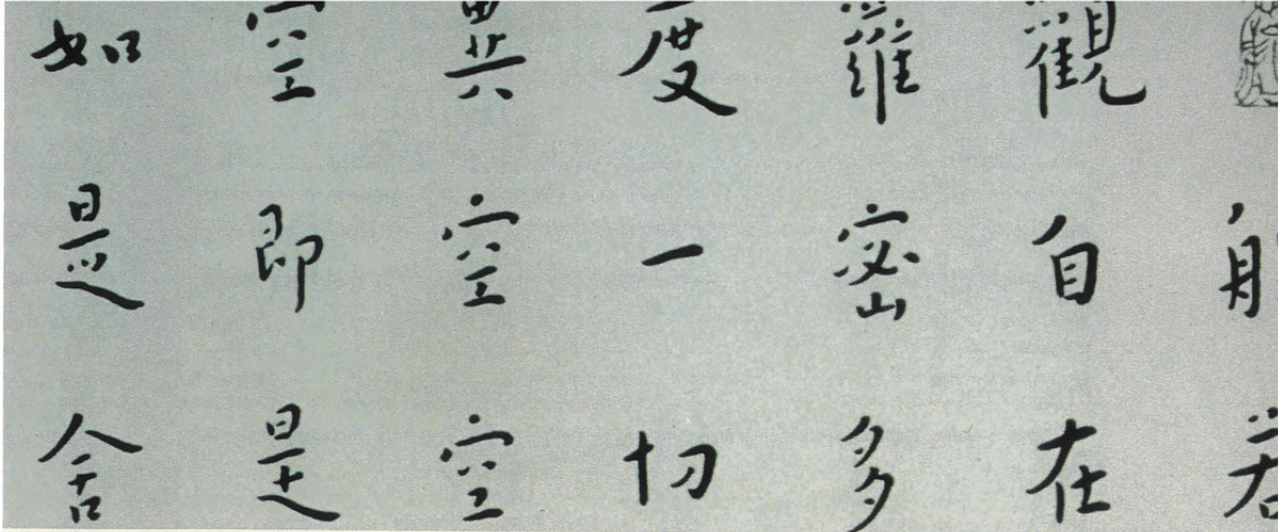 般若
觀自在
羅密多
度一切
異空空
空即是
如是舍